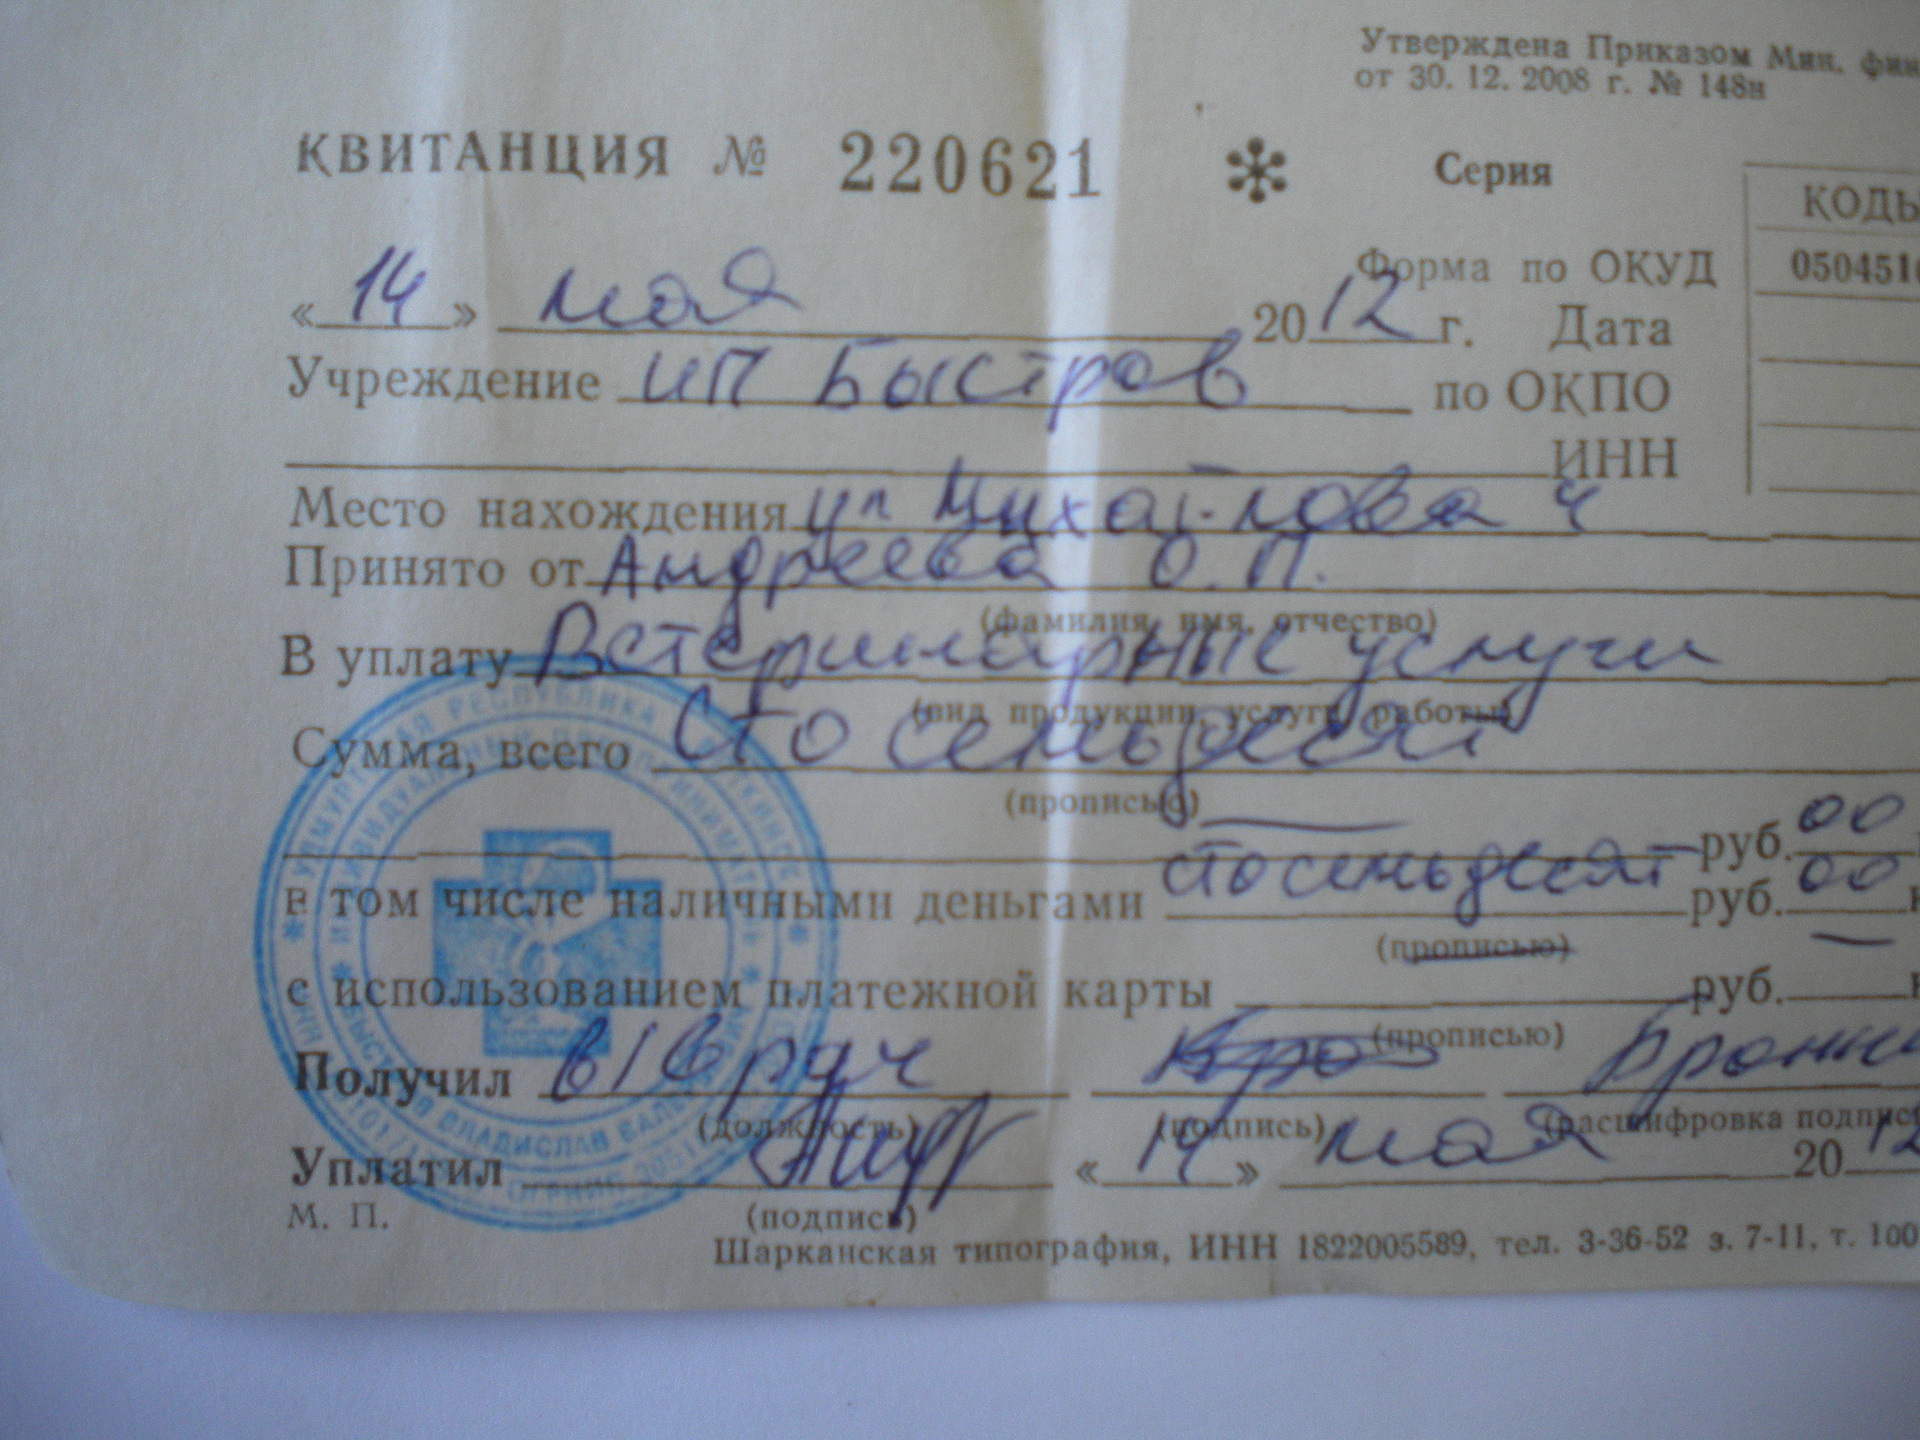 Утверждена Приказом Мин. фин
от 30. 12. 2008 г. № 148н
КВИТАНЦИЯ № 220621 * Серия
КОДЫ
Форма по ОКУД 0504510
« 14 » мая 2012 г. Дата
Учреждение ИП Быстров по ОКПО
ИНН
Место нахождения ул Михайлова 4
Принято от Андреева О.П.
(фамилия, имя, отчество)
В уплату Ветеринарные услуги
(вид продукции, услуги, работы)
Сумма, всего Сто семьдесят
(прописью)
руб. 00
в том числе наличными деньгами сто семьдесят руб. 00
(прописью)
с использованием платежной карты руб.
(прописью)
Получил в/врач
(должность) (подпись) (расшифровка подписи
Уплатил « 14 » мая 2012
М. П. (подпись)
Шарканская типография, ИНН 1822005589, тел. 3-36-52 з. 7-11, т. 100
УДМУРТСКАЯ РЕСПУБЛИКА
ИНДИВИДУАЛЬНЫЙ ПРЕДПРИНИМАТЕЛЬ